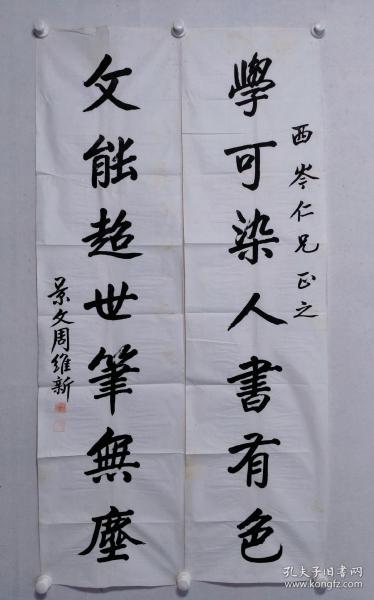 西岑仁兄正之
學可染人書有色
文能超世筆無塵
景文周維新
孔夫子旧书网
www.kongfz.com